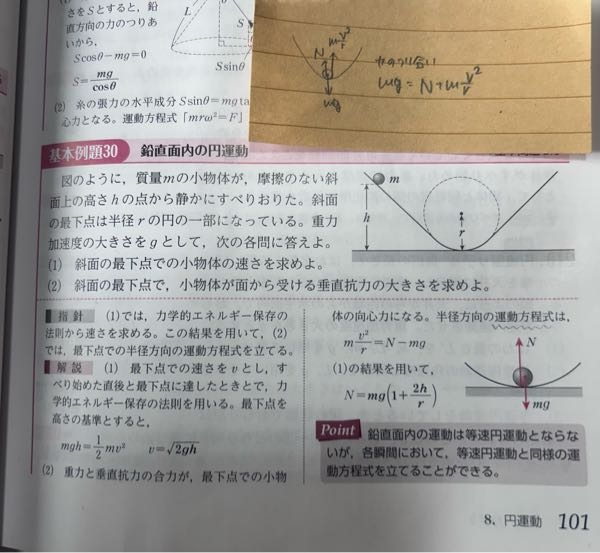 さをSとすると，鉛
直方向の力のつりあ
いから，
Scosθ−mg=0
S=mg/cosθ
L
S
Ssinθ
(2) 糸の張力の水平成分Ssinθ=mgta
心力となる。運動方程式「mrω²=F」
N
m v²/r
mg
力のつり合い
mg = N + m v²/r
基本例題30 鉛直面内の円運動
図のように，質量mの小物体が，摩擦のない斜
面上の高さhの点から静かにすべりおりた。斜面
の最下点は半径rの円の一部になっている。重力
加速度の大きさをgとして，次の各問に答えよ。
(1) 斜面の最下点での小物体の速さを求めよ。
(2) 斜面の最下点で，小物体が面から受ける垂直抗力の大きさを求めよ。
m
h
r
指針 (1)では，力学的エネルギー保存の
法則から速さを求める。この結果を用いて，(2)
では，最下点での半径方向の運動方程式を立てる。
解説 (1) 最下点での速さをvとし，す
べり始めた直後と最下点に達したときとで，力
学的エネルギー保存の法則を用いる。最下点を
高さの基準とすると，
mgh=1/2 mv² v=√2gh
(2) 重力と垂直抗力の合力が，最下点での小物
体の向心力になる。半径方向の運動方程式は，
m v²/r=N−mg
(1)の結果を用いて，
N=mg(1+2h/r)
N
mg
Point 鉛直面内の運動は等速円運動とならな
いが，各瞬間において，等速円運動と同様の運
動方程式を立てることができる。
8．円運動 101